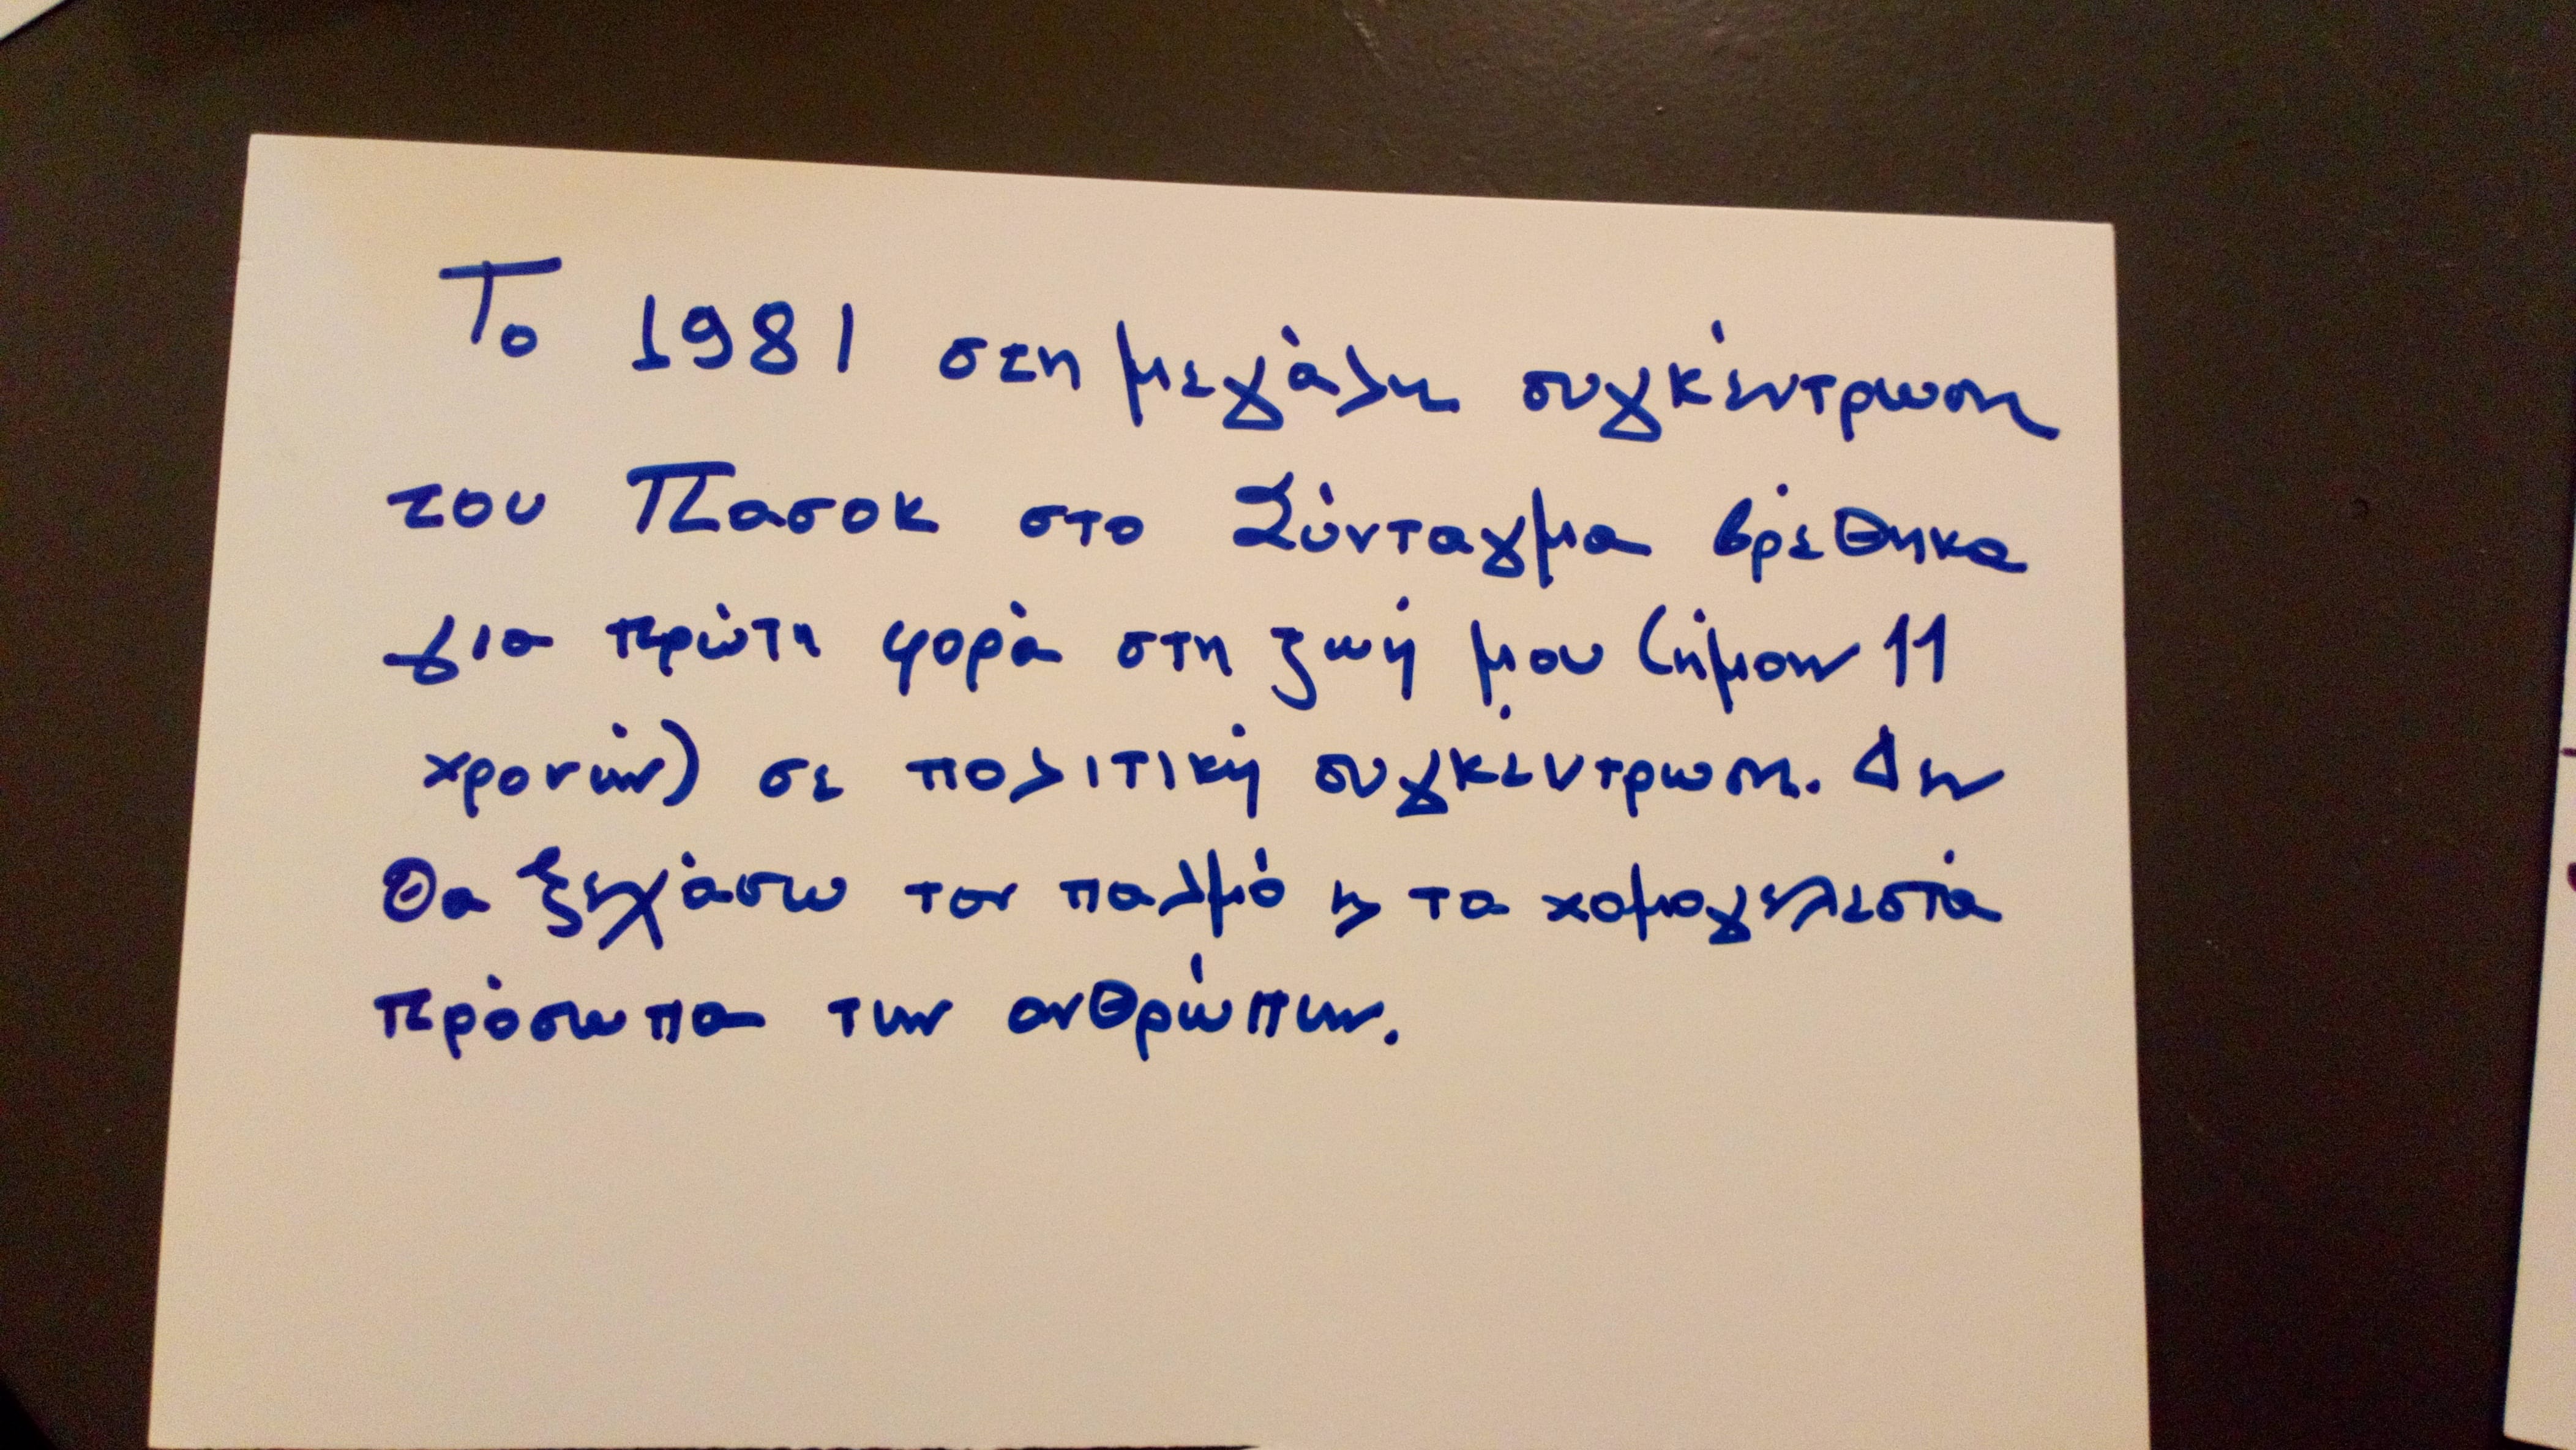 Το 1981 στη μεγάλη συγκέντρωση
του Πασοκ στο Σύνταγμα βρέθηκα
για πρώτη φορά στη ζωή μου (ήμουν 11
χρονών) σε πολιτική συγκέντρωση. Δεν
θα ξεχάσω τον παλμό κ τα χαμογελαστά
πρόσωπα των ανθρώπων.